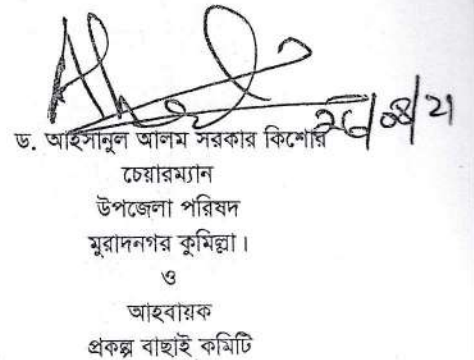 26/08/21
ড. আহসানুল আলম সরকার কিশোর
চেয়ারম্যান
উপজেলা পরিষদ
মুরাদনগর কুমিল্লা।
ও
আহবায়ক
প্রকল্প বাছাই কমিটি